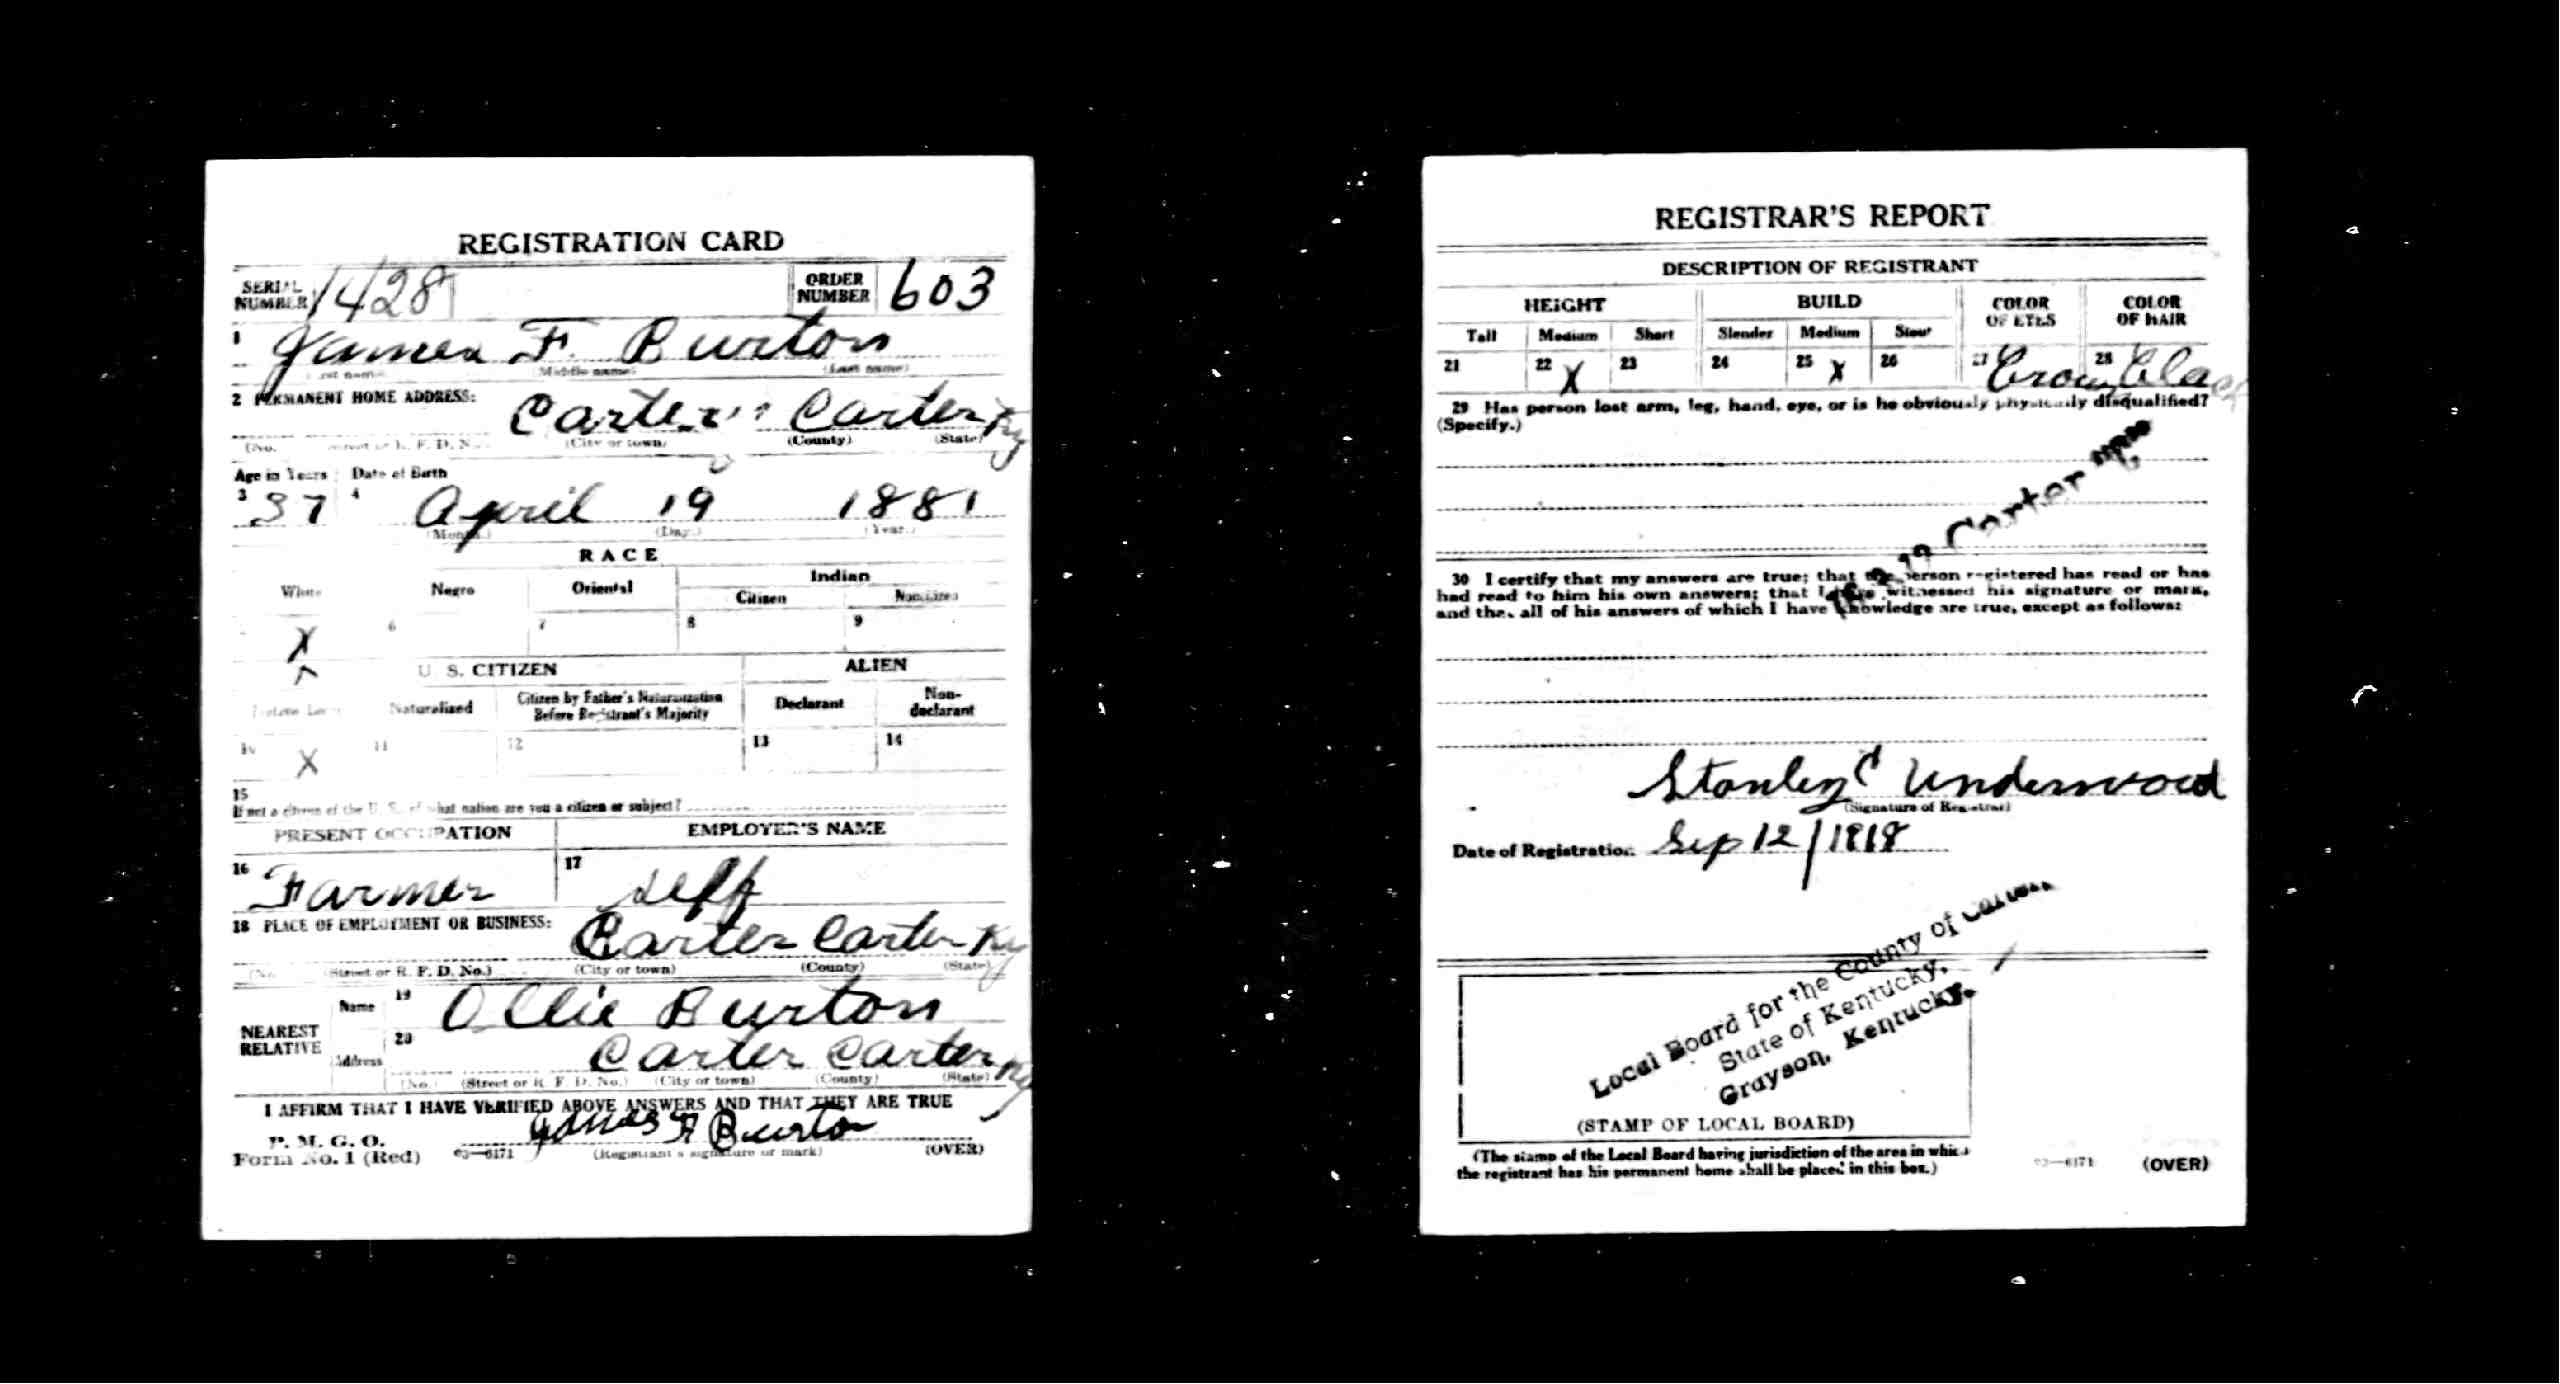 REGISTRATION CARD
SERIAL NUMBER 1428 ORDER NUMBER 603
1 James F. Burton
(Middle name) (Last name)
2 PERMANENT HOME ADDRESS: Carter Carter Ky
(No. (City or town) (County) (State)
Age in Years Date of Birth
3 37 4 April 19 1881
(Month.) (Day.) (Year.)
RACE
White Negro Oriental Indian
Citizen Noncitizen
X 6 7 8 9
U. S. CITIZEN ALIEN
Naturalized Citizen by Father's Naturalization Before Registrant's Majority Declarant Non-declarant
10 X 11 12 13 14
15
If not a citizen of the U. S., of what nation are you a citizen or subject?
PRESENT OCCUPATION EMPLOYER'S NAME
16 Farmer 17 self
18 PLACE OF EMPLOYMENT OR BUSINESS: Carter Carter Ky
(No. (Street or R. F. D. No.) (City or town) (County) (State)
NEAREST RELATIVE
Name 19 Ollie Burton
Address 20 Carter Carter Ky
(No.) (Street or R. F. D. No.) (City or town) (County) (State)
I AFFIRM THAT I HAVE VERIFIED ABOVE ANSWERS AND THAT THEY ARE TRUE
P. M. G. O.
Form No. 1 (Red) 03—6171 James F Burton
(Registrant's signature or mark) (OVER)
REGISTRAR'S REPORT
DESCRIPTION OF REGISTRANT
HEIGHT BUILD COLOR OF EYES COLOR OF HAIR
Tall Medium Short Slender Medium Stout
21 22 X 23 24 25 X 26 27 28
29 Has person lost arm, leg, hand, eye, or is he obviously physically disqualified?
(Specify.)
Carter
30 I certify that my answers are true; that the person registered has read or has
had read to him his own answers; that I have witnessed his signature or mark,
and that all of his answers of which I have knowledge are true, except as follows:
Stanley C Underwood
(Signature of Registrar)
Date of Registration Sep 12/1918
Local Board for the County of Carter,
State of Kentucky,
Grayson, Kentucky.
(STAMP OF LOCAL BOARD)
(The stamp of the Local Board having jurisdiction of the area in which
the registrant has his permanent home shall be placed in this box.)
03—6171 (OVER)